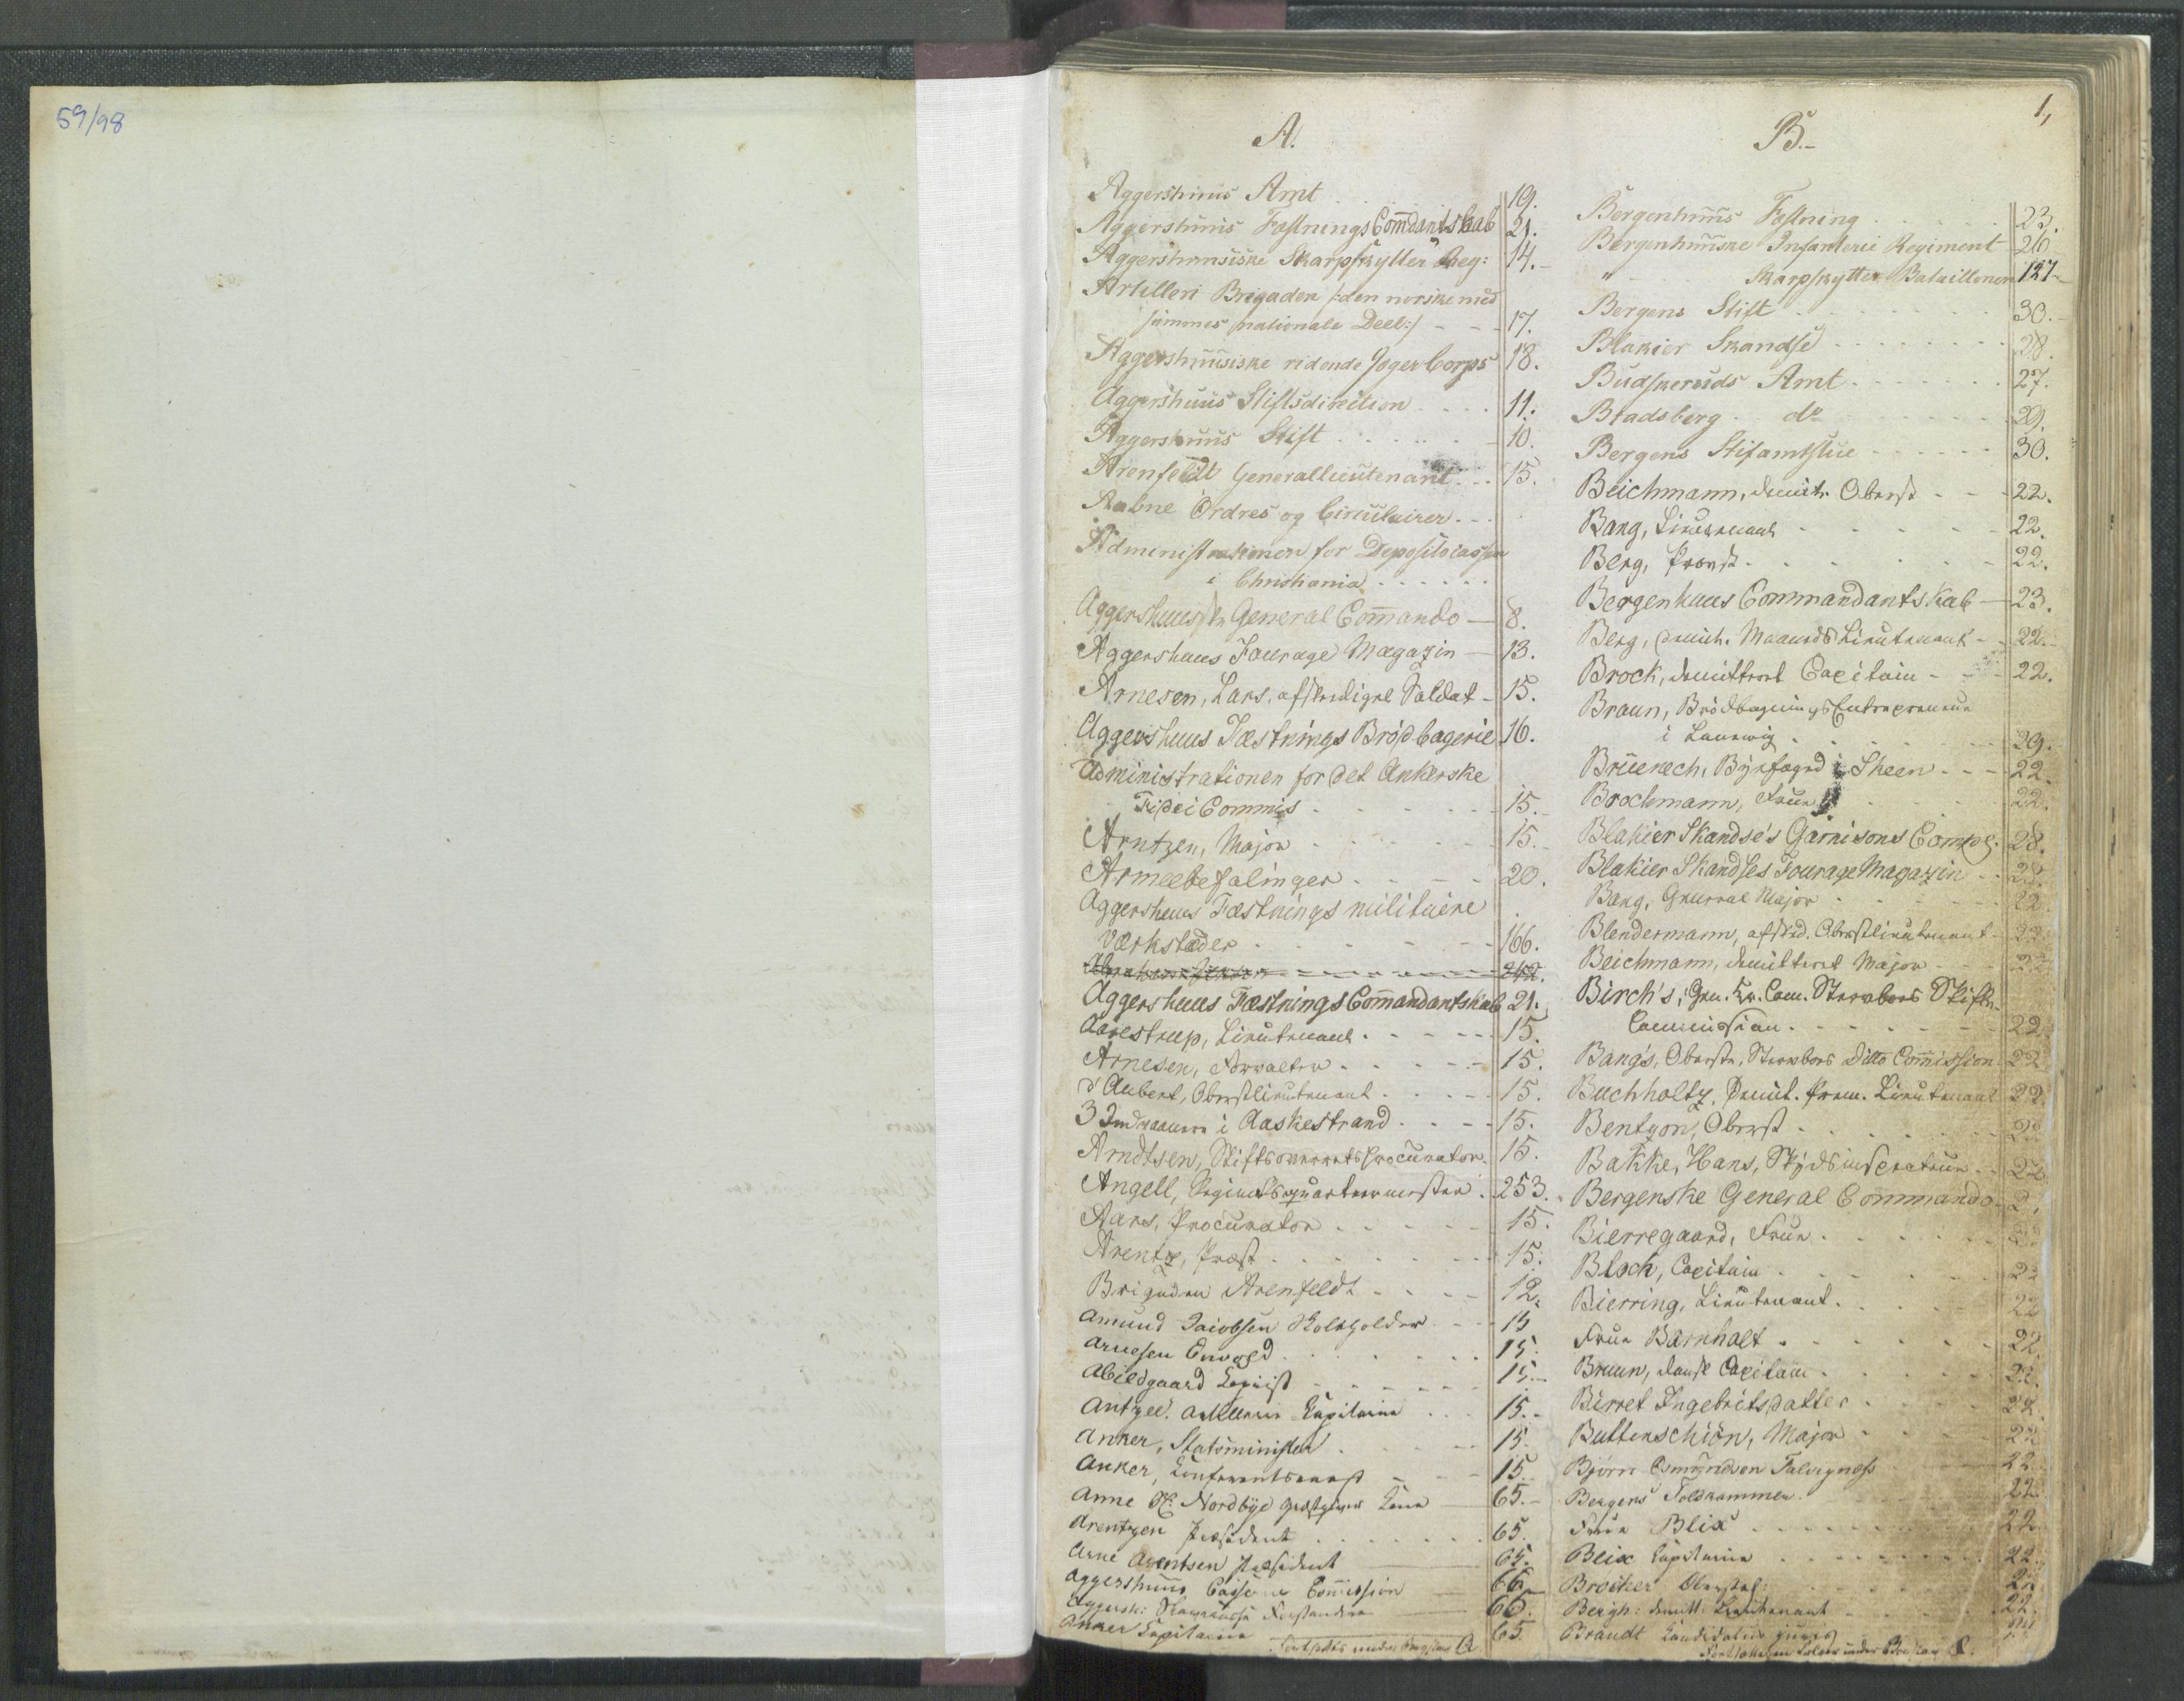 59/98
1,
A.
Aggershuus Amt 19.
Aggershuus FæstningsCommdantskab 21.
Aggershuusiske Skarpskytter Reg: 14.
Artilleri Brigaden /:den norske med
sammes nationale Deel:/ 17.
Aggershuusiske ridende Jæger Corps 18.
Aggershuus Stiftsdirection 11.
Aggershuus Stift 10.
Arenfeldt Generallieutenant 15.
Aabne Ordres og Circulairer
Administrationen for Depositocassen
i Christiania
Aggershuusske General Commando 8.
Aggershuus Fourage Magazin 13.
Arnesen, Lars, afskediget Soldat 15.
Aggershuus Fæstnings Brødbagerie 16.
Administrationen for det Ankerske
FideiCommis 15.
Arntzen, Major 15.
Armeebefalinger 20.
Aggershuus Fæstnings militaire
Værksteder 166.
242.
Aggershuus FæstningsCommandantskab 21.
Aarestrup, Lieutenant 15.
Arnesen, Forvalter 15.
d'Aubert, Oberstlieutenant 15.
3 Indvaanere i Aaskestrand 15.
Arndtsen, StiftsoverretsProcurator 15.
Angell, Regimentsquarteermester 253.
Aars, Procurator 15.
Arentz, Præst 15.
Brigaden Arenfeldt 12.
Amund Jacobsen 15
Arnesen Enwold 15.
Abildgaard Copiist 15.
Antzée, Capitaine 15.
Anker, Statsminister 15.
Anker, Conferentsraad 15.
Anne Nordbye Kone 65.
Arentzen Præsident 65.
Arne Arentsen Præsident 65.
Aggershuus Casserne Commission 66.
Aggersh: 66.
Anker Capitaine 65.
Fortsættes under A
B.
Bergenhuus Fæstning 23.
Bergenhuuske Infanterie Regiment 26
" Skarpskytter Bataillonen 127
Bergens Stift 30.
Blakier Skandse 28.
Budskeruds Amt 27.
Bradsberg do 29.
Bergens Stiftamtstue 30.
Beichmann, demit. Oberst 22.
Bang, Lieutenant 22.
Berg, Provst 22.
Bergenhuus Commandantskab 23.
Berg, demit. Lieutenant 22.
Brock, demitteret Capitain 22.
Braun, BrødbagningsEntrepreneur
i Laurvig 29.
Brüenech, Byefoged i Skeen 22.
Brochmann, Frue 22.
Blakier Skandse's Garnisons Compg. 28.
Blakier Skandses Fourage Magazin 28.
Bang, General Major 22
Blendermann, afsked. Oberstlieutenant 22
Beichmann, demitteret Major 22
Birch's, Gen. Kr. Com. Stervboes Skifte
Commission 22.
Bang's, Oberste, Stervboes Ditto Commission 22
Buchholtz, Demit. Prem. Lieutenant 22.
Bentzon, Oberst 22
Bakke, Hans, Skydsinspecteur 22
Bergenske General Commando 2,
Bierregaard, Frue 22
Bloch, Capitain 22
Bierring, Lieutenant 22
Frue Barnholt 22.
Bruun, dansk Capitain 22.
Birret Ingebritsdatter 22.
Buttenschiön, Major 22
Bjørn Osmundsen 22.
Bergens Toldkammer 22.
Frue Blix 22.
Blix Capitaine 22.
Brocker Oberstl: 22.
Bergh: demitt: Lieutenant 22.
Brandt Candidatus juris 22